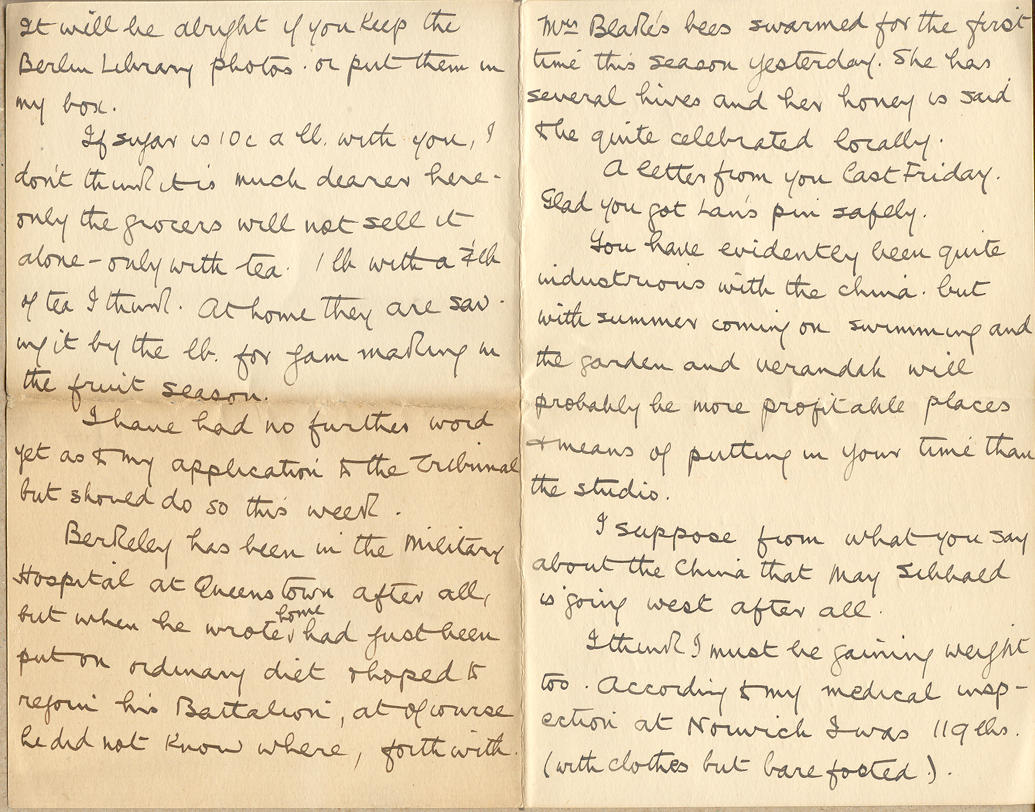 It will be alright if you keep the
Berlin Library photos. or put them in
my box.
If sugar is 10c a lb. with you, I
don't think it is much dearer here -
only the grocers will not sell it
alone - only with tea. 1 lb with a ½lb
of tea I think. At home they are sav-
ing it by the lb. for jam making in
the fruit season.
I have had no further word
yet as to my application to the Tribunal
but should do so this week.
Berkeley has been in the Military
Hospital at Queenstown after all,
but when he wrote home had just been
put on ordinary diet & hoped to
rejoin his Battalion, at of course
he did not know where, forthwith.
Mrs Blake's bees swarmed for the first
time this season yesterday. She has
several hives and her honey is said
to be quite celebrated locally.
A letter from you last Friday.
Glad you got Ian's pin safely.
You have evidently been quite
industrious with the china. but
with summer coming on swimming and
the garden and verandah will
probably be more profitable places
& means of putting in your time than
the studio.
I suppose from what you say
about the China that May Sibbald
is going west after all.
I think I must be gaining weight
too. According to my medical insp-
ection at Norwich I was 119 lbs.
(with clothes but bare footed!).